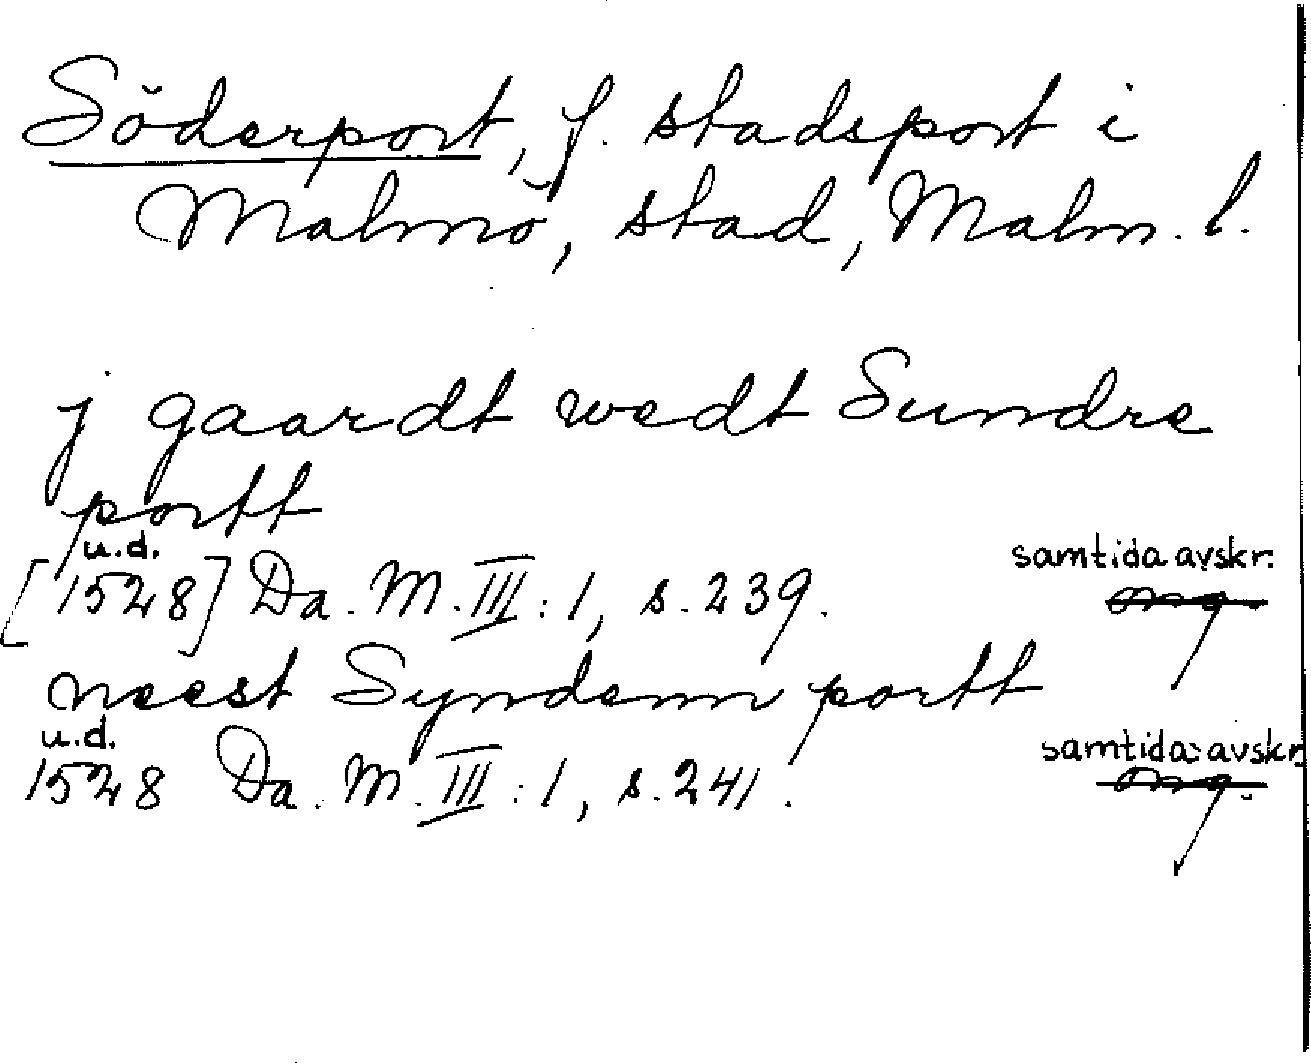 Söderport, f. stadsport i
Malmö, stad, Malm. l.
j gaardt wedt Sundre
portt
u.d.
[1528] Da. M. III: 1, s. 239.
samtida avskr.
neest Syndenn portt
u.d.
1528 Da. M. III: 1, s. 241.
samtida avskr.